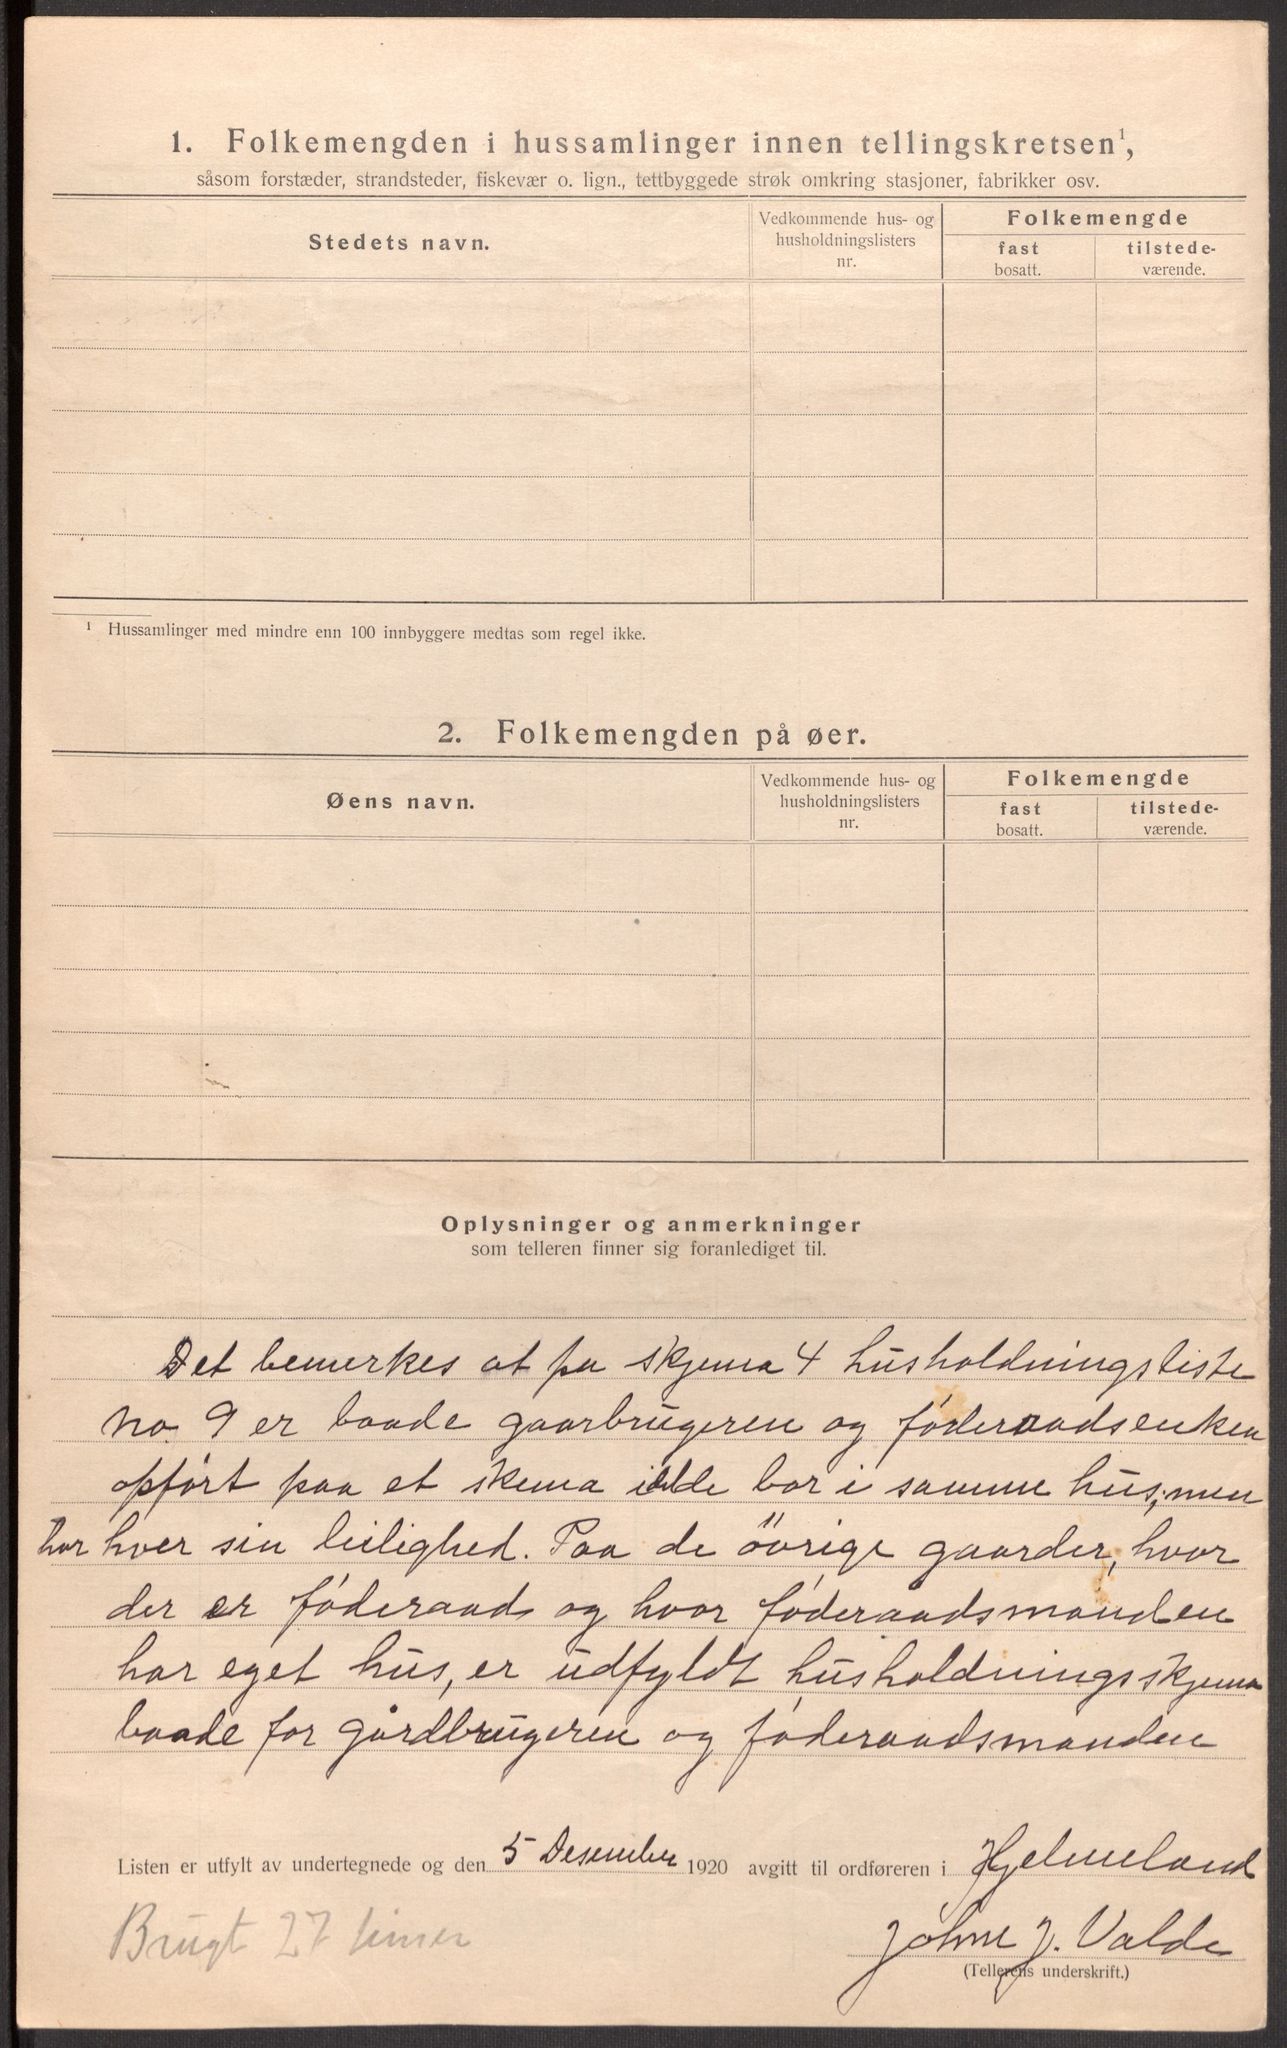 1. Folkemengden i hussamlinger innen tellingskretsen¹,
såsom forstæder, strandsteder, fiskevær o. lign., tettbyggede strøk omkring stasjoner, fabrikker osv.
Stedets navn.
Vedkommende hus- og
husholdningslisters
nr.
Folkemengde
fast
bosatt.
tilstede-
værende.
¹ Hussamlinger med mindre enn 100 innbyggere medtas som regel ikke.
2. Folkemengden på øer.
Øens navn.
Vedkommende hus- og
husholdningslisters
nr.
Folkemengde
fast
bosatt.
tilstede-
værende.
Oplysninger og anmerkninger
som telleren finner sig foranlediget til.
Det bemerkes at pa skjema 4 husholdningsliste
no 9 er baade gaarbrugeren og föderaadsenken
opfört paa et skema de bor i samme hus, men
har hver sin leilighed. Paa de övrige gaarder, hvor
der er föderaad og hvor föderaadsmanden
har eget hus, er udfyldt husholdningsskjema
baade for gårdbrugeren og föderaadsmanden
Listen er utfylt av undertegnede og den 5 Desember 1920 avgitt til ordføreren i Hjelmeland
Brugt 27 timer
Johne J. Valde
(Tellerens underskrift.)